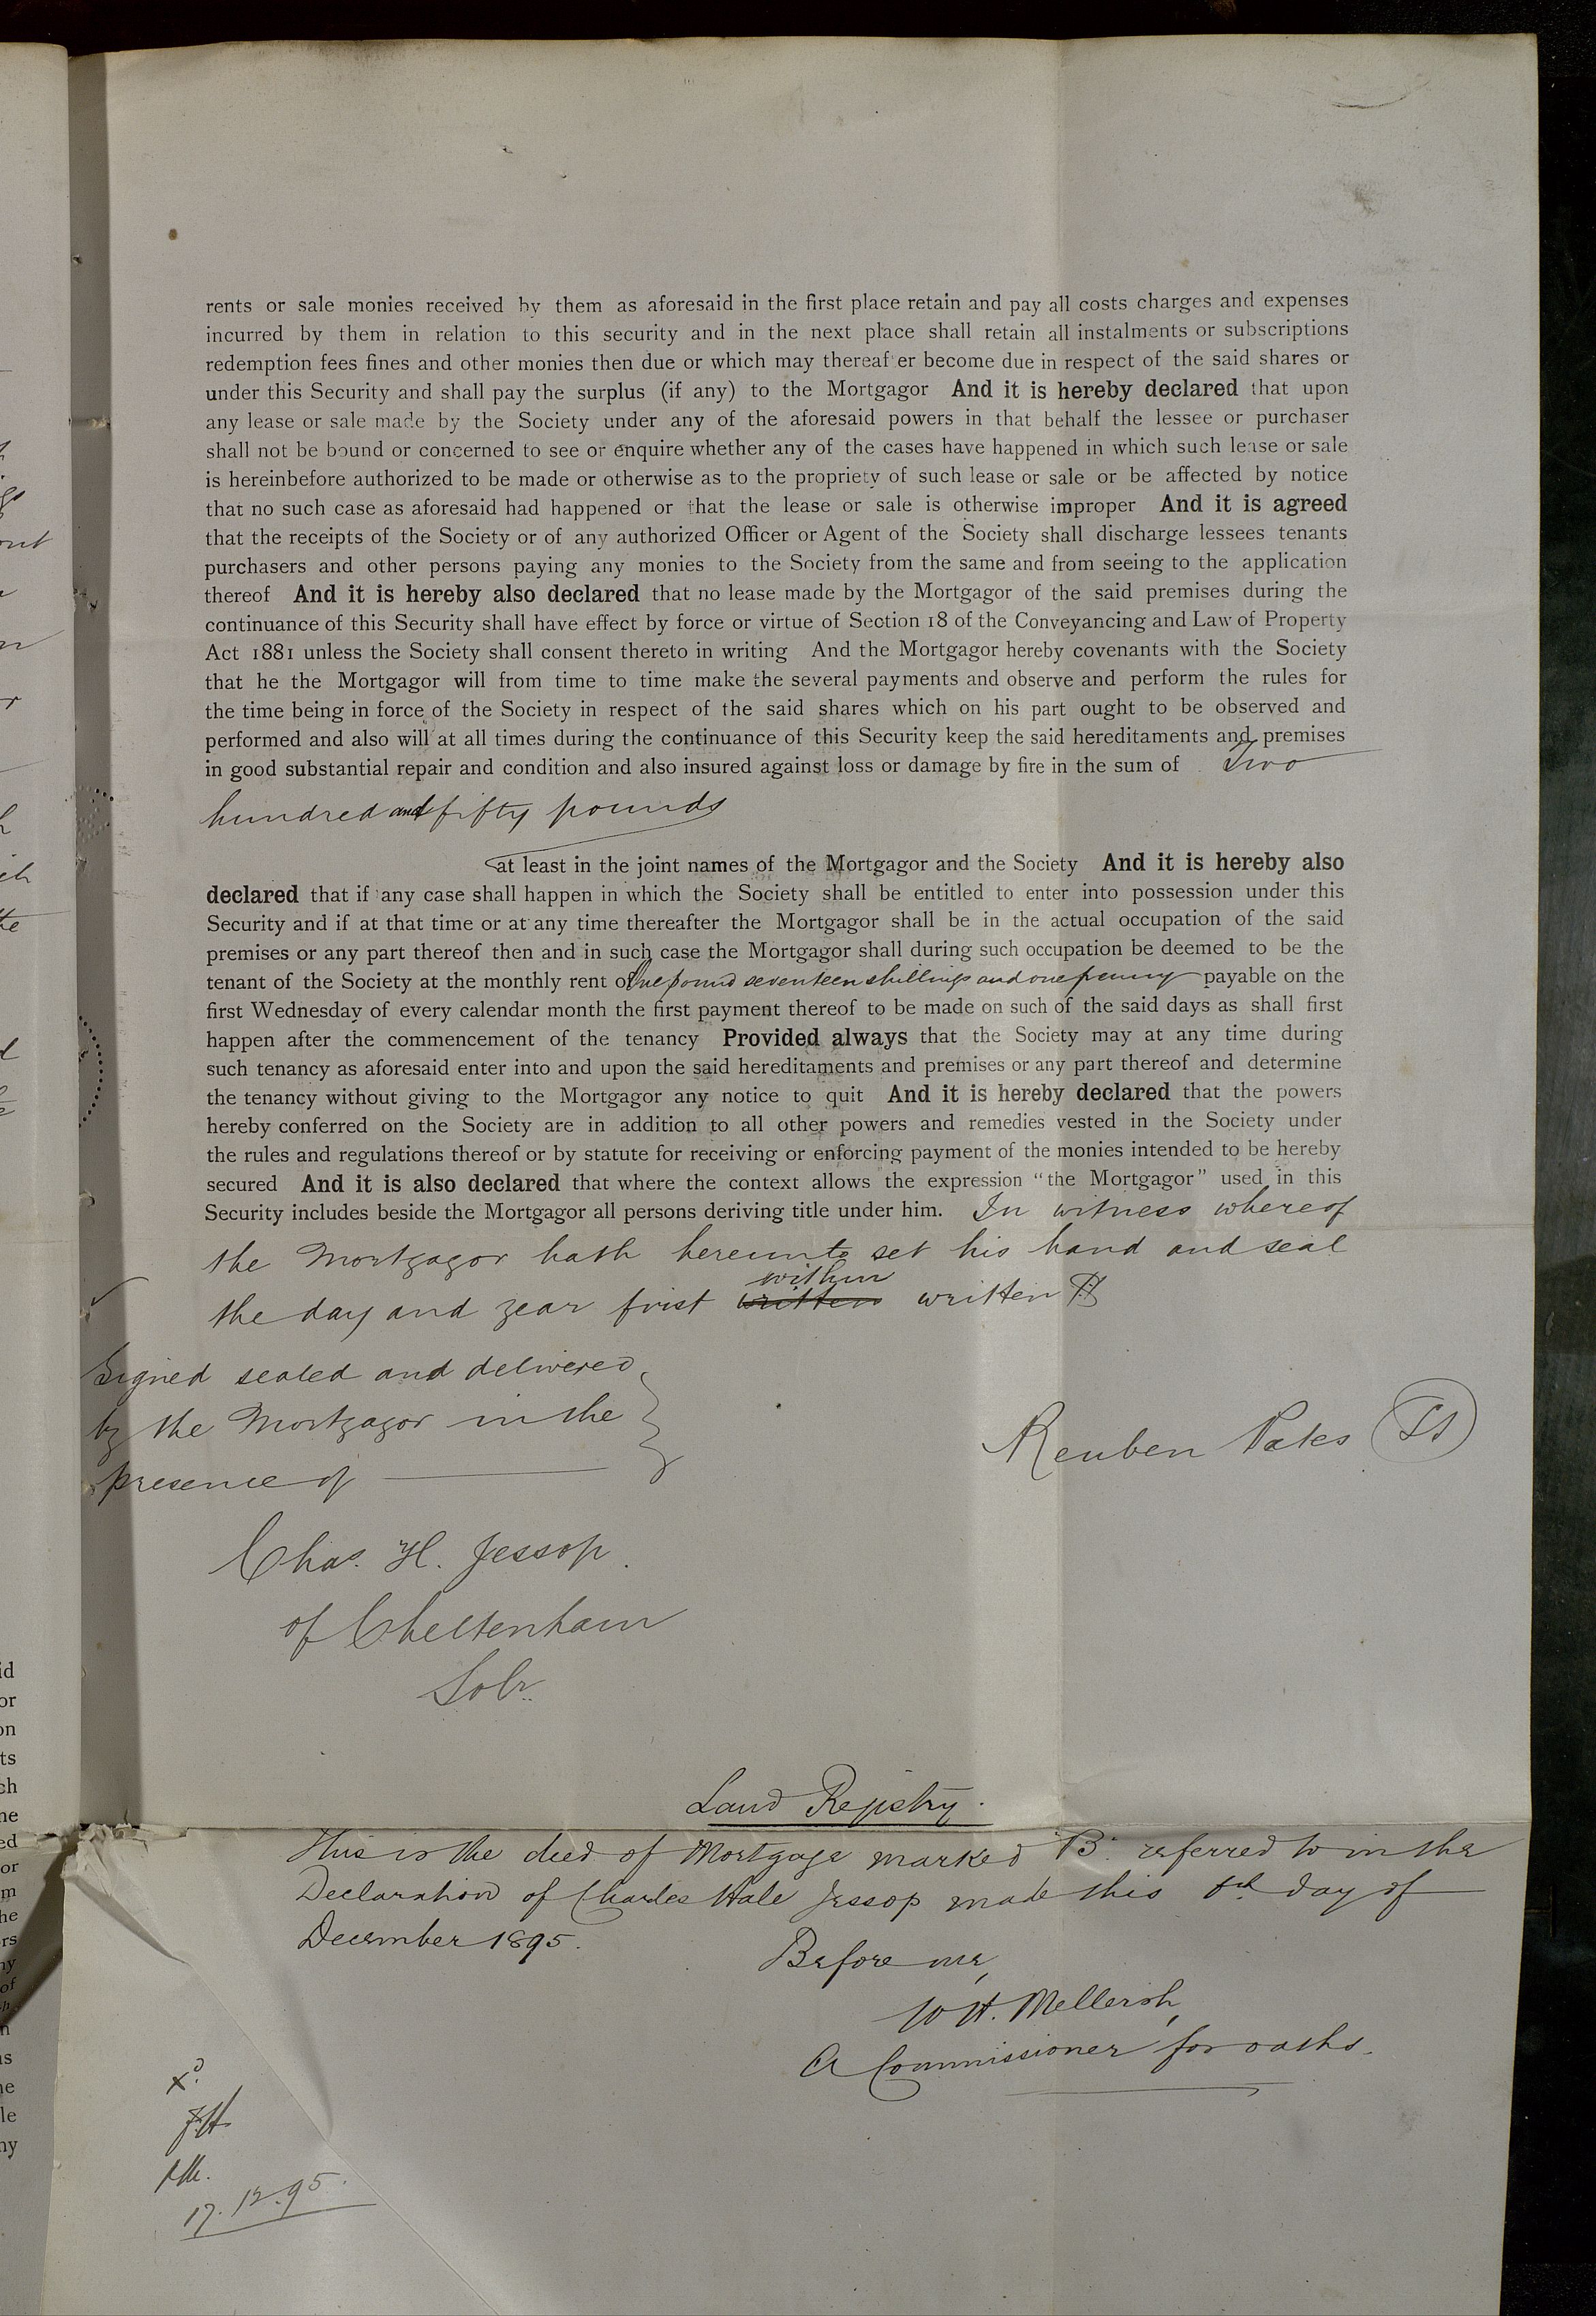 rents or sale monies received by them as aforesaid in the first place retain and pay all costs charges and expenses
incurred by them in relation to this security and in the next place shall retain all instalments or subscriptions
redemption fees fines and other monies then due or which may thereafter become due in respect of the said shares or
under this Security and shall pay the surplus (if any) to the Mortgagor And it is hereby declared that upon
any lease or sale made by the Society under any of the aforesaid powers in that behalf the lessee or purchaser
shall not be bound or concerned to see or enquire whether any of the cases have happened in which such lease or sale
is hereinbefore authorized to be made or otherwise as to the propriety of such lease or sale or be affected by notice
that no such case as aforesaid had happened or that the lease or sale is otherwise improper And it is agreed
that the receipts of the Society or of any authorized Officer or Agent of the Society shall discharge lessees tenants
purchasers and other persons paying any monies to the Society from the same and from seeing to the application
thereof And it is hereby also declared that no lease made by the Mortgagor of the said premises during the
continuance of this Security shall have effect by force or virtue of Section 18 of the Conveyancing and Law of Property
Act 1881 unless the Society shall consent thereto in writing And the Mortgagor hereby covenants with the Society
that he the Mortgagor will from time to time make the several payments and observe and perform the rules for
the time being in force of the Society in respect of the said shares which on his part ought to be observed and
performed and also will at all times during the continuance of this Security keep the said hereditaments and premises
in good substantial repair and condition and also insured against loss or damage by fire in the sum of Two
hundred and fifty pounds
at least in the joint names of the Mortgagor and the Society And it is hereby also
declared that if any case shall happen in which the Society shall be entitled to enter into possession under this
Security and if at that time or at any time thereafter the Mortgagor shall be in the actual occupation of the said
premises or any part thereof then and in such case the Mortgagor shall during such occupation be deemed to be the
tenant of the Society at the monthly rent of One pound seventeen shillings and one penny payable on the
first Wednesday of every calendar month the first payment thereof to be made on such of the said days as shall first
happen after the commencement of the tenancy Provided always that the Society may at any time during
such tenancy as aforesaid enter into and upon the said hereditaments and premises or any part thereof and determine
the tenancy without giving to the Mortgagor any notice to quit And it is hereby declared that the powers
hereby conferred on the Society are in addition to all other powers and remedies vested in the Society under
the rules and regulations thereof or by statute for receiving or enforcing payment of the monies intended to be hereby
secured And it is also declared that where the context allows the expression "the Mortgagor" used in this
Security includes beside the Mortgagor all persons deriving title under him. In witness whereof
the Mortgagor hath hereunto set his hand and seal
within
the day and year first written written
Signed sealed and delivered
by the Mortgagor in the
presence of
Reuben Pates LS
Chas. H. Jessop.
of Cheltenham
Solr.
Land Registry.
This is the deed of Mortgage marked "B" referred to in the
Declaration of Charles Hale Jessop made this day of
December 1895.
Before me,
W H. Mellersh,
A Commissioner for oaths.
17.12.95.